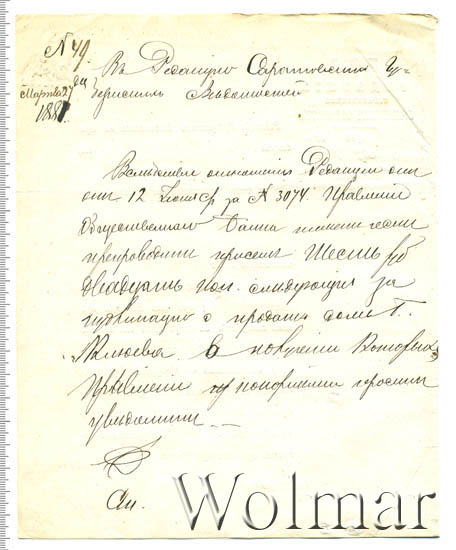 N 49.
Марта 27 дня
1881.
Въ Редакцію Саратовскихъ Гу-
бернскихъ Вѣдомостей
Вслѣдствіе отношенія Редакціи отъ
12 за N 3074. Правленіе
Общественнаго Банка имѣетъ честь
препроводить при семъ Шесть руб
двадцать коп. слѣдующія за
публикацію о продажѣ дома Г.
въ полученіи которыхъ
Правленіе проситъ
увѣдомить
Wolmar